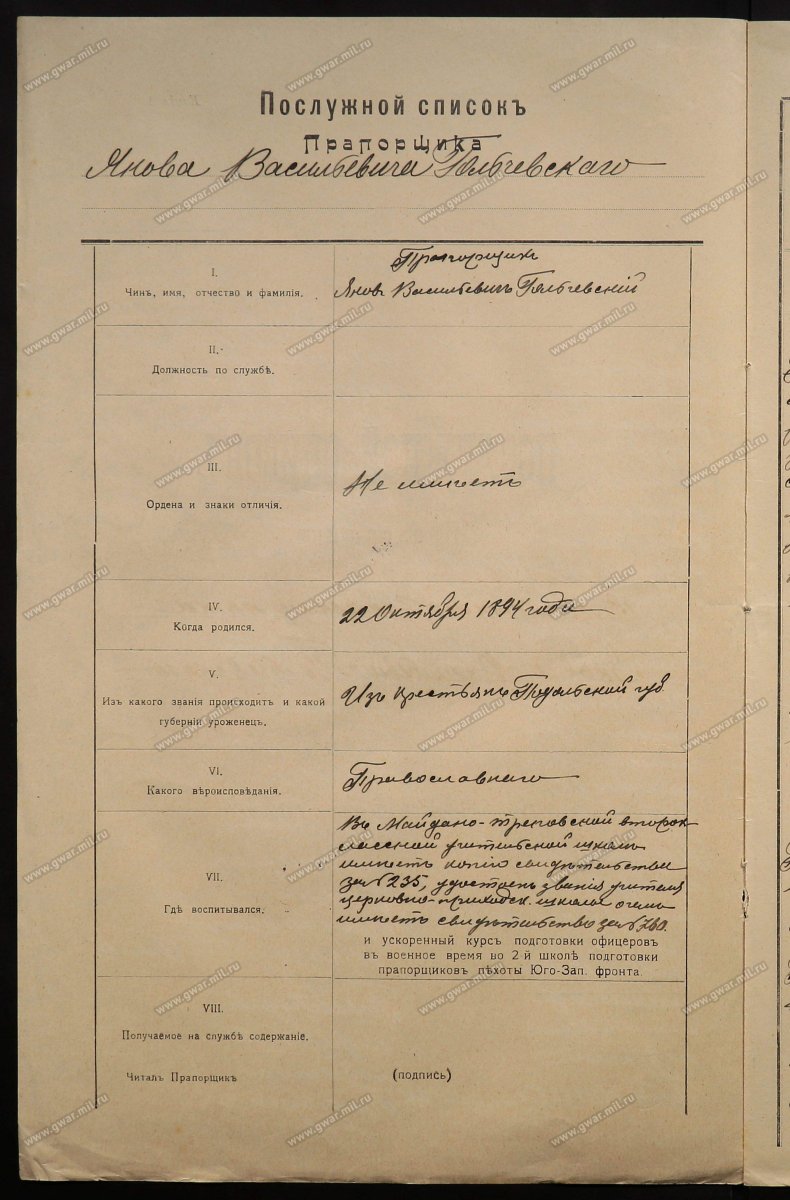 Послужной списокъ
Прапорщика
Якова Васильевича Гольчевскаго
I.
Чинъ, имя, отчество и фамилія.
Прапорщикъ
Яковъ Васильевичъ Гольчевскій
II.
Должность по службѣ.
III.
Ордена и знаки отличія.
Не имѣетъ
IV.
Когда родился.
22 Октября 1894 года
V.
Изъ какого званія происходитъ и какой
губерніи уроженецъ.
Изъ крестьянъ Подольской губ
VI.
Какого вѣроисповѣданія.
Православнаго
VII.
Гдѣ воспитывался.
Въ Майдано-Треповской второк-
лассной учительской школѣ
имѣетъ копію свидѣтельства
за № 235, удостоенъ званія учителя
церковно-приходск. школы о чемъ
имѣетъ свидѣтельство за №
и ускоренный курсъ подготовки офицеровъ
въ военное время во 2-й школѣ подготовки
прапорщиковъ пѣхоты Юго-Зап. фронта.
VIII.
Получаемое на службѣ содержаніе.
Читалъ Прапорщикъ
(подпись)
www.gwar.mil.ru